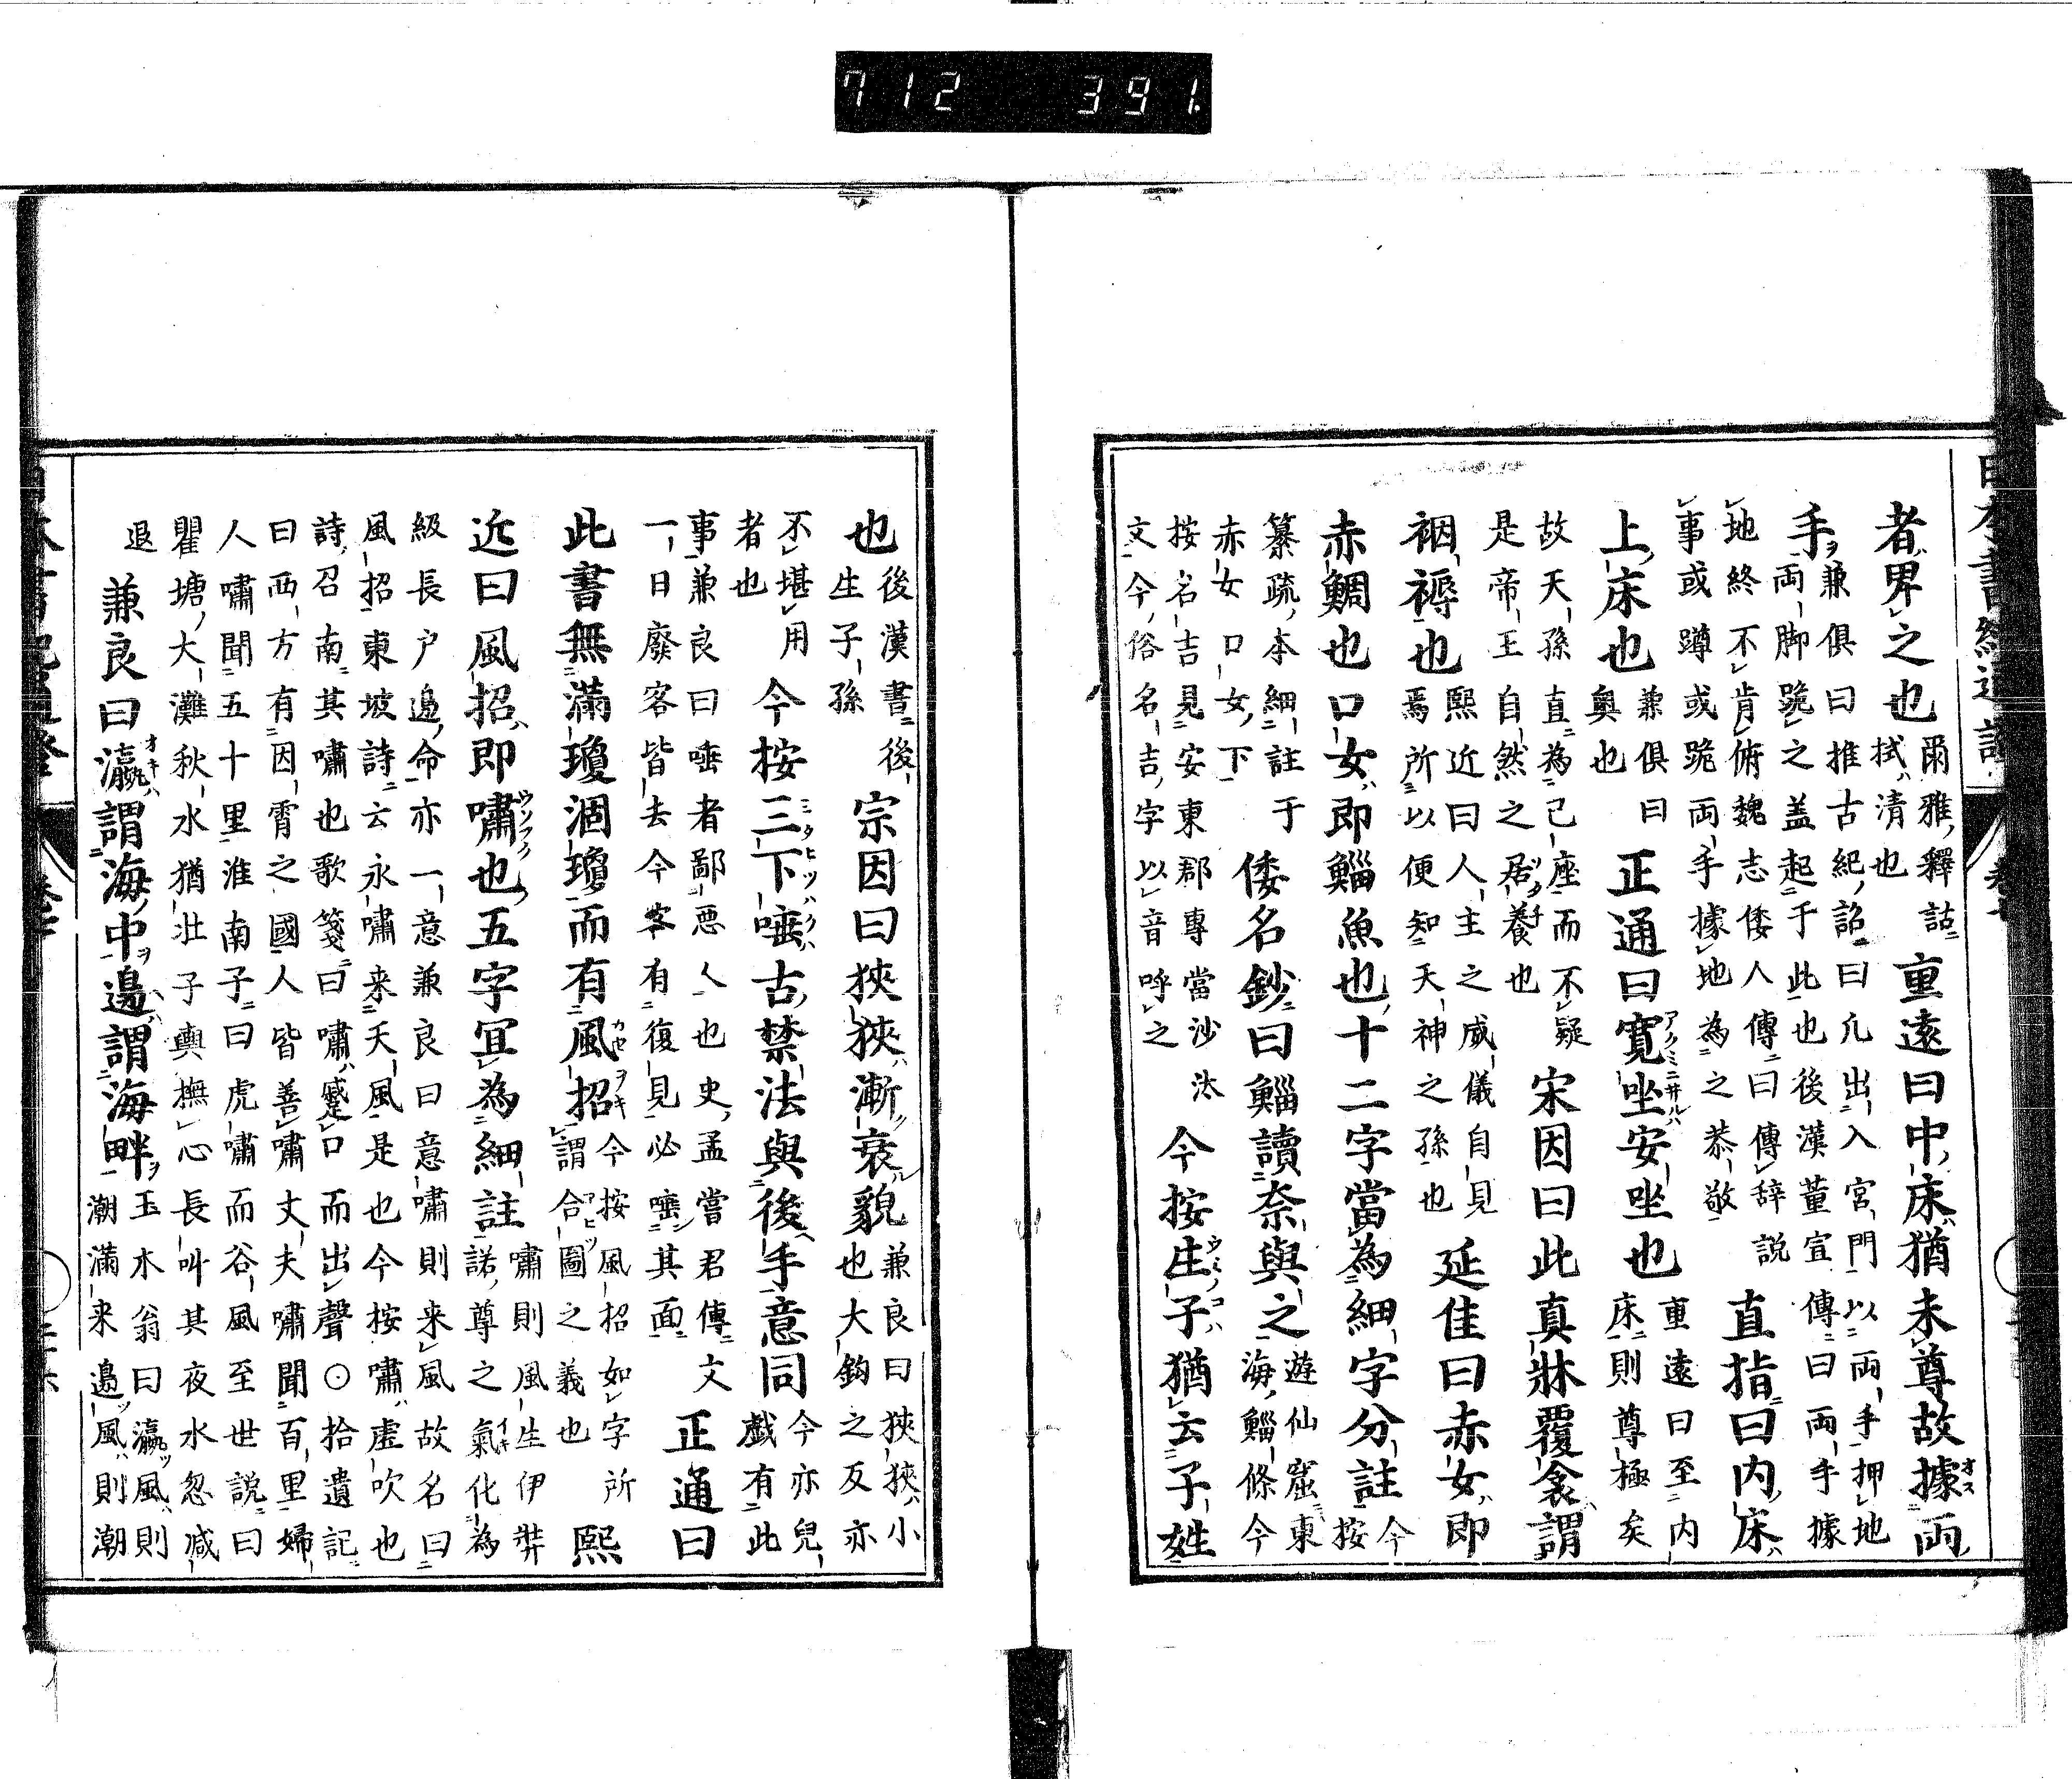 712 391.
者卑之也爾雅釋詁拭清也重遠曰中床猶未尊故據両
手兼俱曰推古紀詔曰凢出入宮門以両手押地両脚跪之盖起于此也後漢董宣傳曰両手據
地終不肯俯魏志倭人傳曰傳辞説事或蹲或跪両手據地為之恭敬直指曰内床
上床也兼俱曰奥也正通曰寛坐安坐也重遠曰至内床則尊極矣
故天孫直為己座而不疑是帝王自然之居養也宋因曰此真牀覆衾謂
裀褥也熙近曰人主之威儀自見焉所以便知天神之孫也延佳曰赤女即
赤鯛也口女即鯔魚也十二字當為細字分註今按
纂疏本細註于赤女口女下倭名鈔曰鯔讀奈與之遊仙窟東海鯔條今
按名吉見安東郡專當沙汰文今俗名吉字以音呼之今按生子猶云子姓
也後漢書後生子孫宗因曰狹狹漸衰貌兼良曰狹狹小也大鈎之反亦
不堪用者也今按三下唾古禁法與後手意同今亦兒戲有此
事兼良曰唾者鄙悪人也史孟嘗君傳文一日廢客皆去今客有復見必唾其面正通曰
此書無滿瓊涸瓊而有風招今按風招如字所謂合圖之義也熙
近曰風招即嘯也五字宜為細註嘯則風生伊弉諾尊之氣化為
級長戸邊命亦一意兼良曰意嘯則来風故名曰風招東坡詩云永嘯来天風是也今按嘯虚吹也
詩召南其嘯也歌箋曰嘯蹙口而出聲○拾遺記曰西方有因霄之國人皆善嘯丈夫嘯聞百里婦
人嘯聞五十里淮南子曰虎嘯而谷風至世説曰瞿塘大灘秋水猶壮子輿撫心長叫其夜水忽减
退兼良曰瀛謂海中邊謂海畔玉木翁曰瀛風則潮滿来邊風則潮